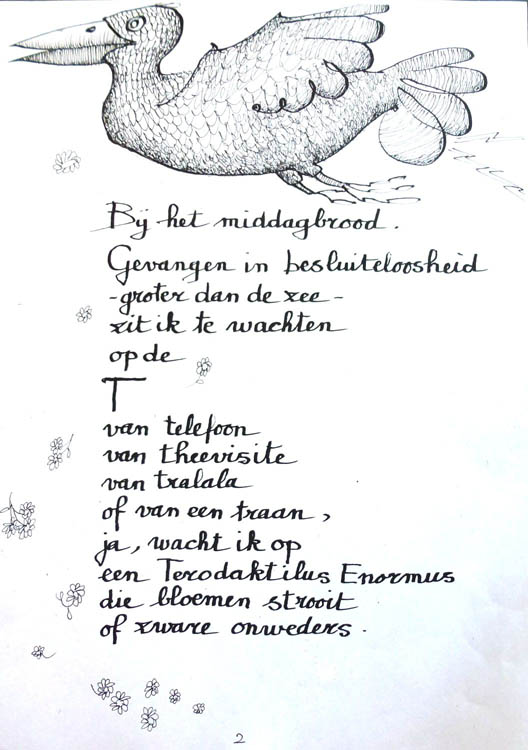 Bij het middagbrood.
Gevangen in besluiteloosheid
-groter dan de zee-
zit ik te wachten
op de
T
van telefoon
van theevisite
van tralala
of van een traan,
ja, wacht ik op
een Terodaktilus Enormus
die bloemen strooit
of zware onweders.
2